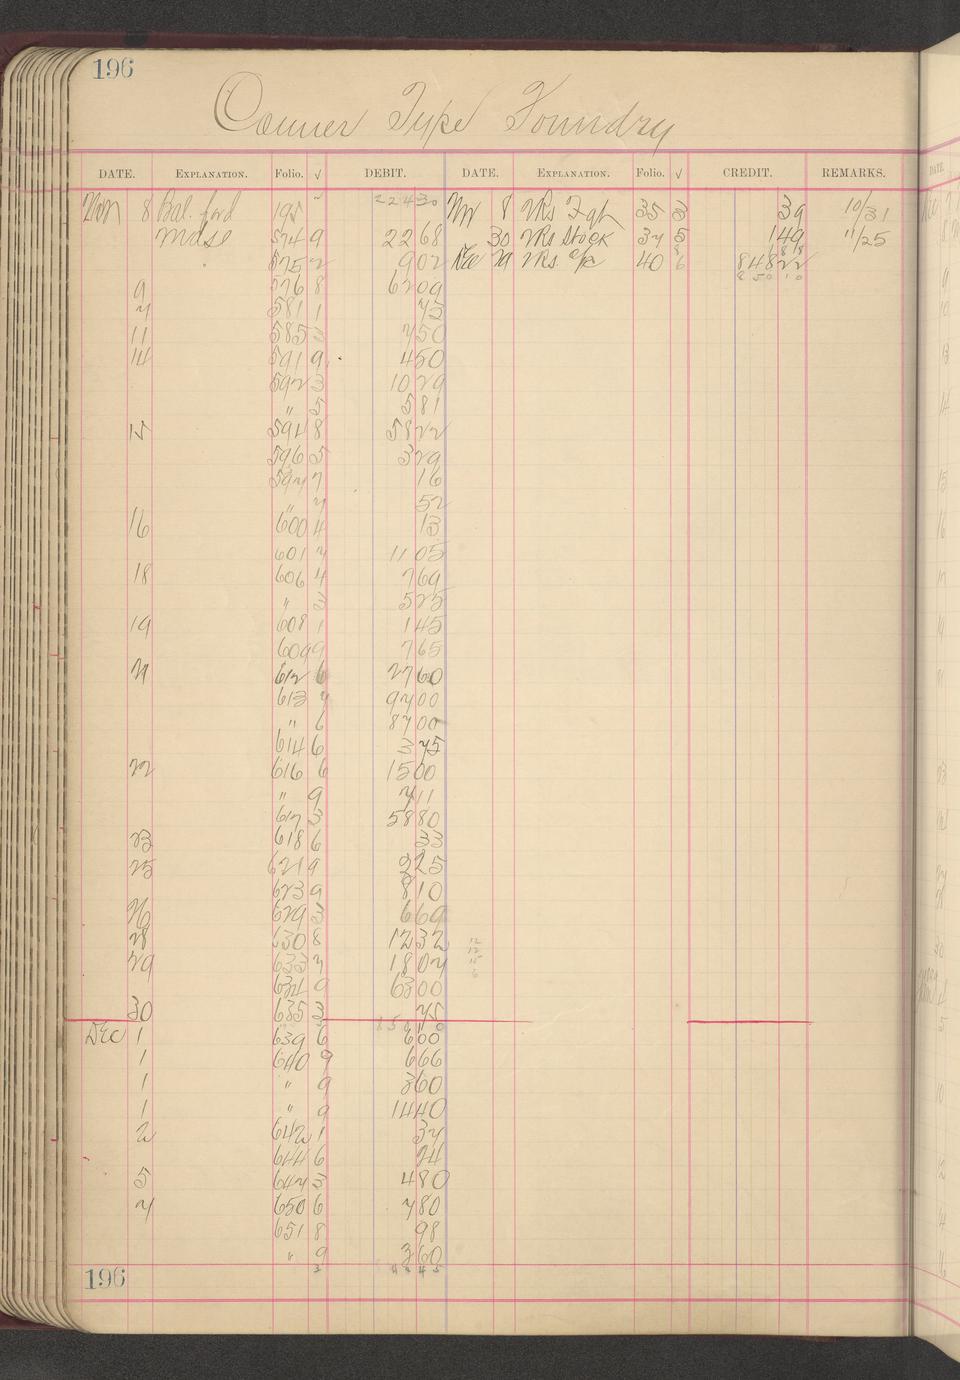 196
Conner Type Foundry
DATE. EXPLANATION. Folio. √ DEBIT. DATE. EXPLANATION. Folio. √ CREDIT. REMARKS.
Nov 8 Bal. ford 195 224 30 Nov 8 35 3 39 10/31
Mdse 574 9 22 68 30 Stock 37 5 1 49 11/25
575 2 9 02 Dec 29 40 6 848 22
9 576 8 62 09 850 10
7 581 1 75
11 585 3 7 50
14 591 9 4 50
592 3 10 29
" 5 5 81
15 594 8 58 22
596 5 3 29
597 7 16
" 7 52
16 600 4 13
601 7 11 05
18 606 4 7 69
" 3 5 25
19 608 1 1 45
609 9 7 65
21 612 6 27 60
613 7 97 00
" 6 87 00
614 6 3 75
22 616 6 15 00
" 9 7 11
617 3 58 80
23 618 6 33
25 621 9 2 25
623 9 8 10
26 629 3 6 69
28 630 8 12 32
29 633 7 18 07
634 9 63 00
30 635 3 75
Dec 1 639 6 6 00
1 640 9 6 66
1 " 9 3 60
1 " 9 14 40
2 642 1 37
644 6 24
5 647 3 4 80
7 650 6 7 80
651 8 98
" 9 3 60
196